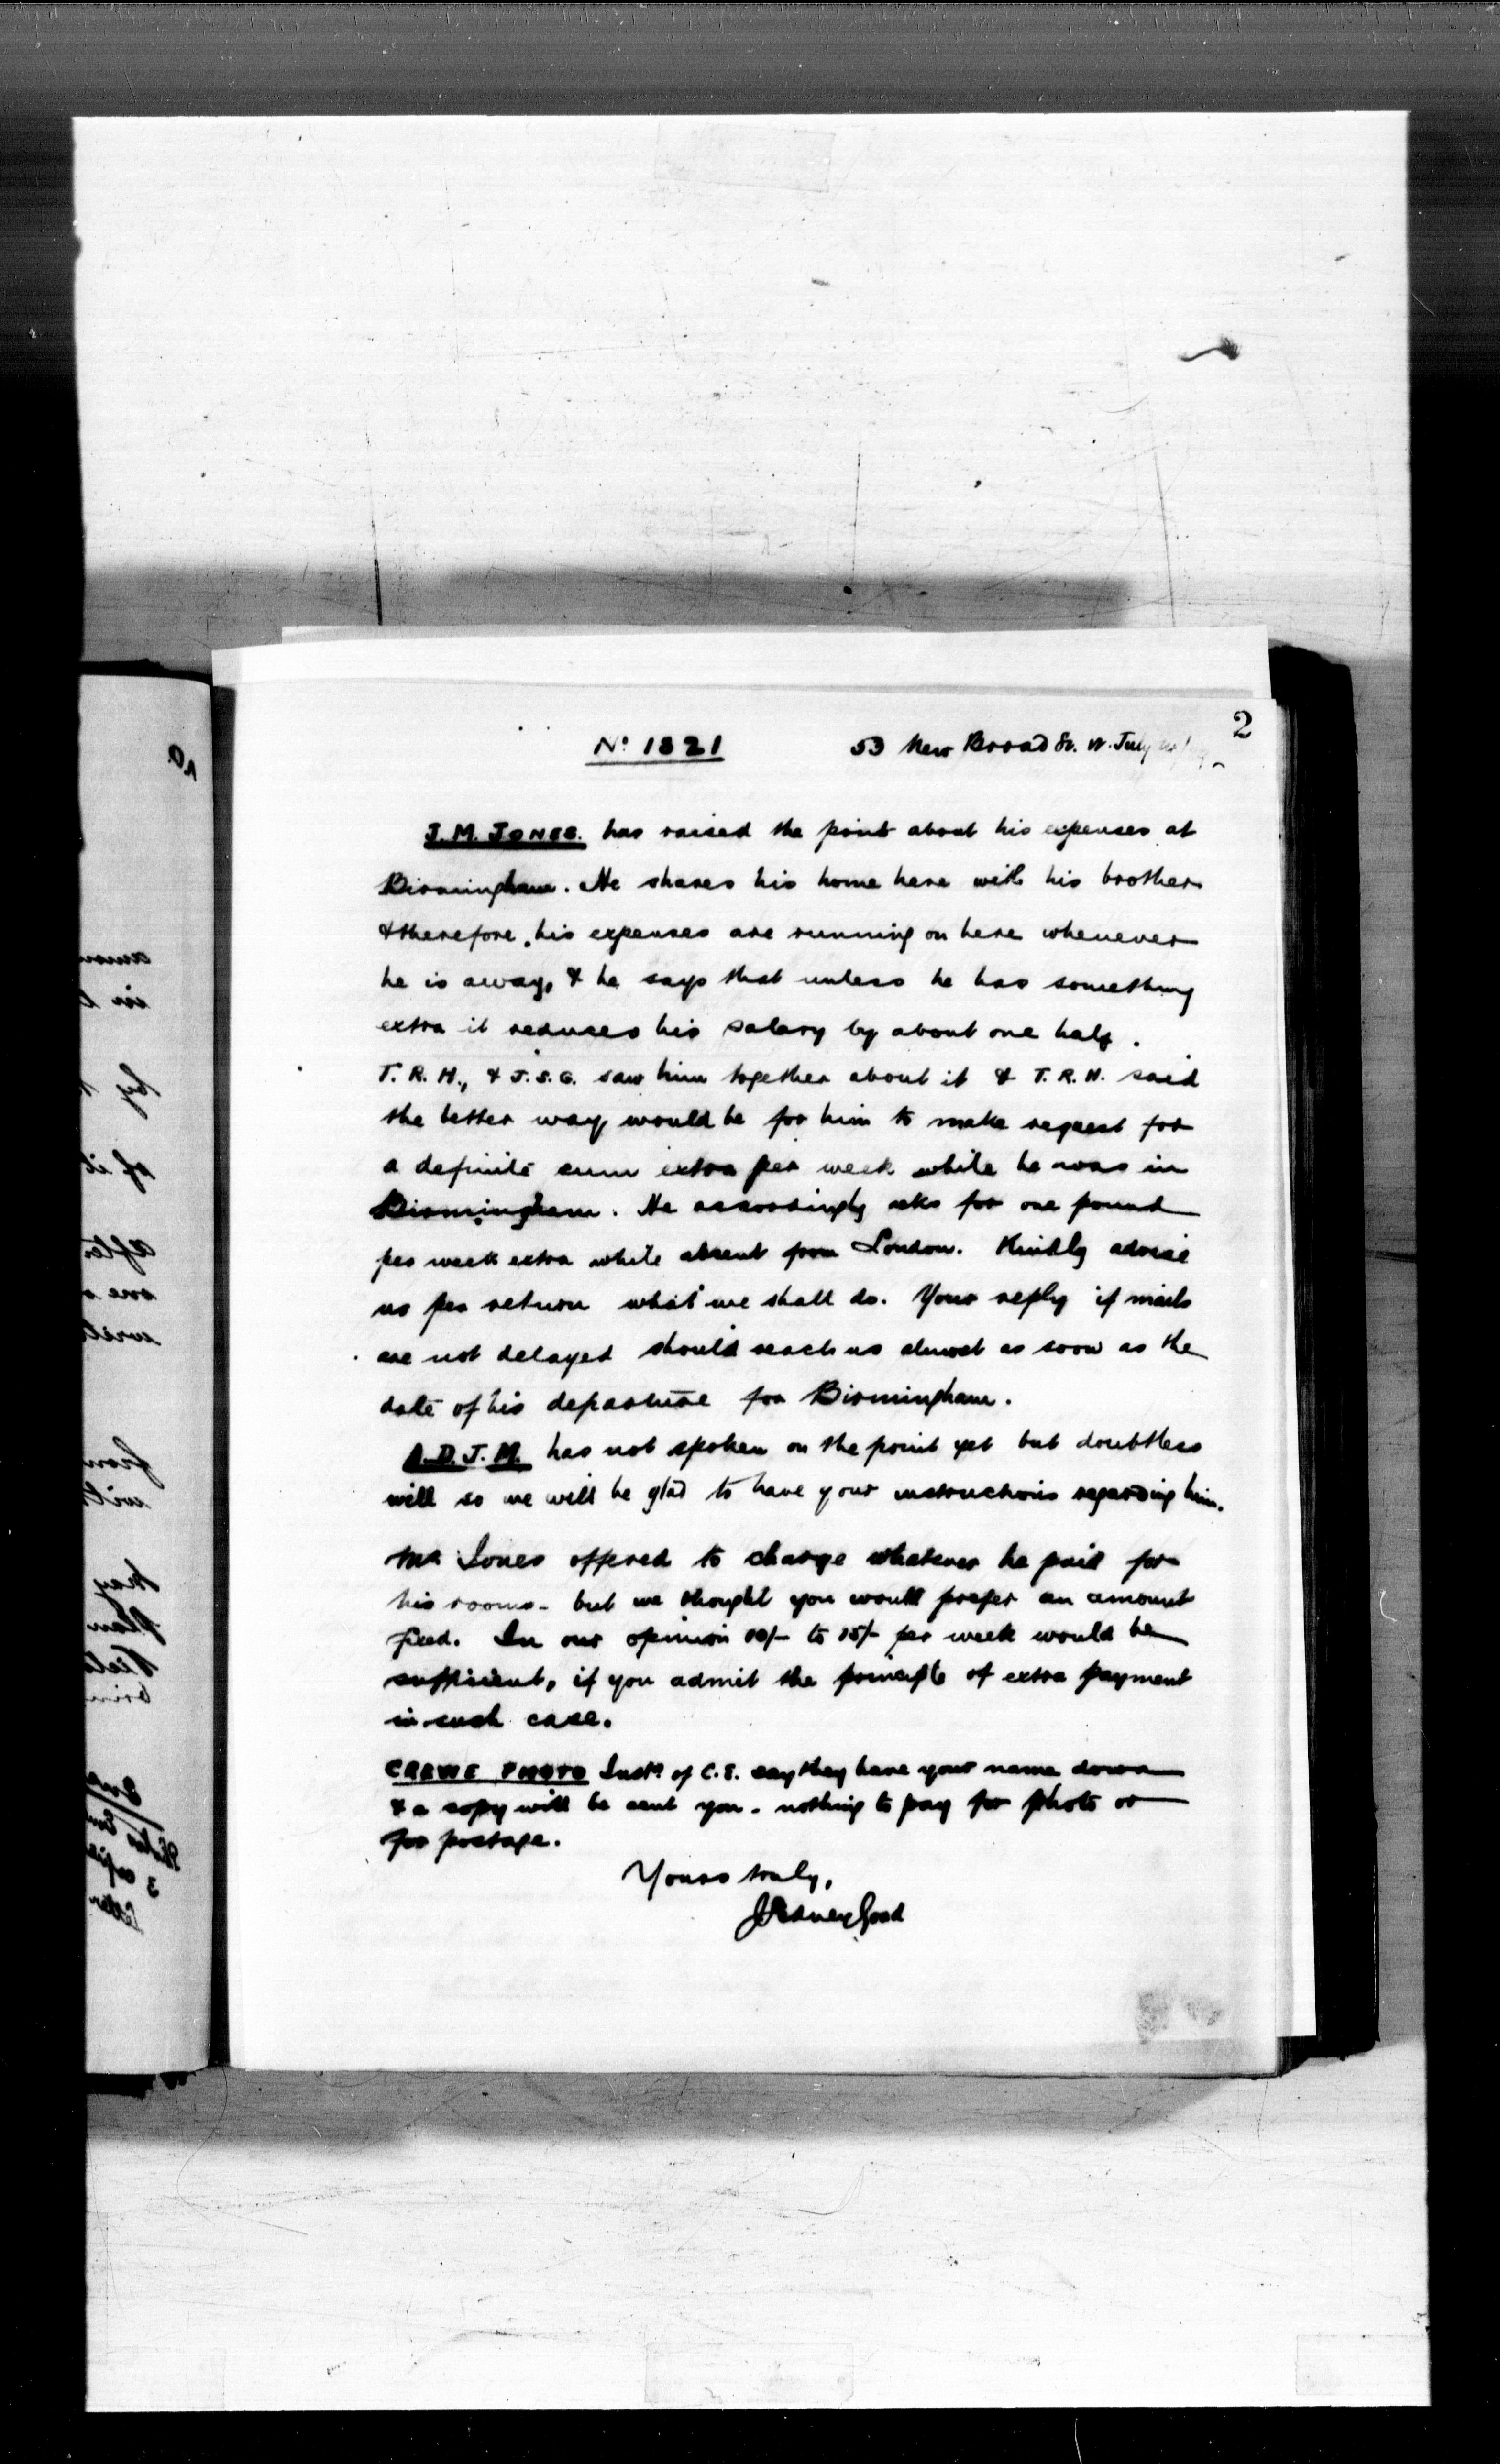 2
No 1321 53 New Broad St. W. July
J. M. JONES. has raised the point about his expenses at
Birmingham. He shares his home here with his brother
& therefore, his expenses are running on here whenever
he is away, & he says that unless he has something
extra it reduces his salary by about one half.
T. R. H., & J. S. G. saw him together about it & T. R. H. said
the better way would be for him to make request for
a definite sum extra per week while he was in
Birmingham. He accordingly asks for one pound
per week extra while absent from London. Kindly advise
us per return what we shall do. Your reply if mails
are not delayed should reach us almost as soon as the
date of his departure for Birmingham.
A. D. J. M. has not spoken on the point yet but doubtless
will so we will be glad to have your instructions regarding him.
Mr Jones offered to charge whatever he paid for
his rooms - but we thought you would prefer an amount
fixed. In our opinion 10/- to 15/- per week would be
sufficient, if you admit the principle of extra payment
in such case.
CREWE PHOTO Instn of C. E. say they have your name down
& a copy will be sent you - nothing to pay for photo or
for postage.
Yours truly,
J Sidney Good